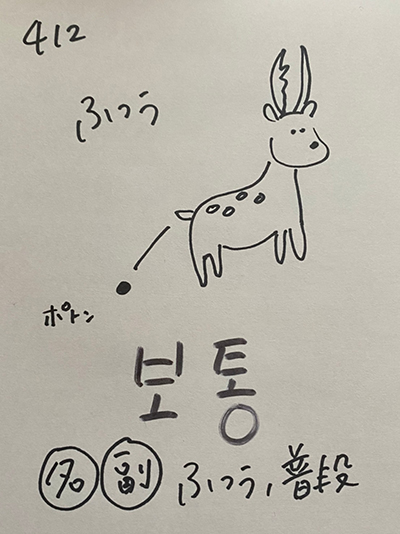 412
ふつう
ポトン
보통
名 副 ふつう, 普段